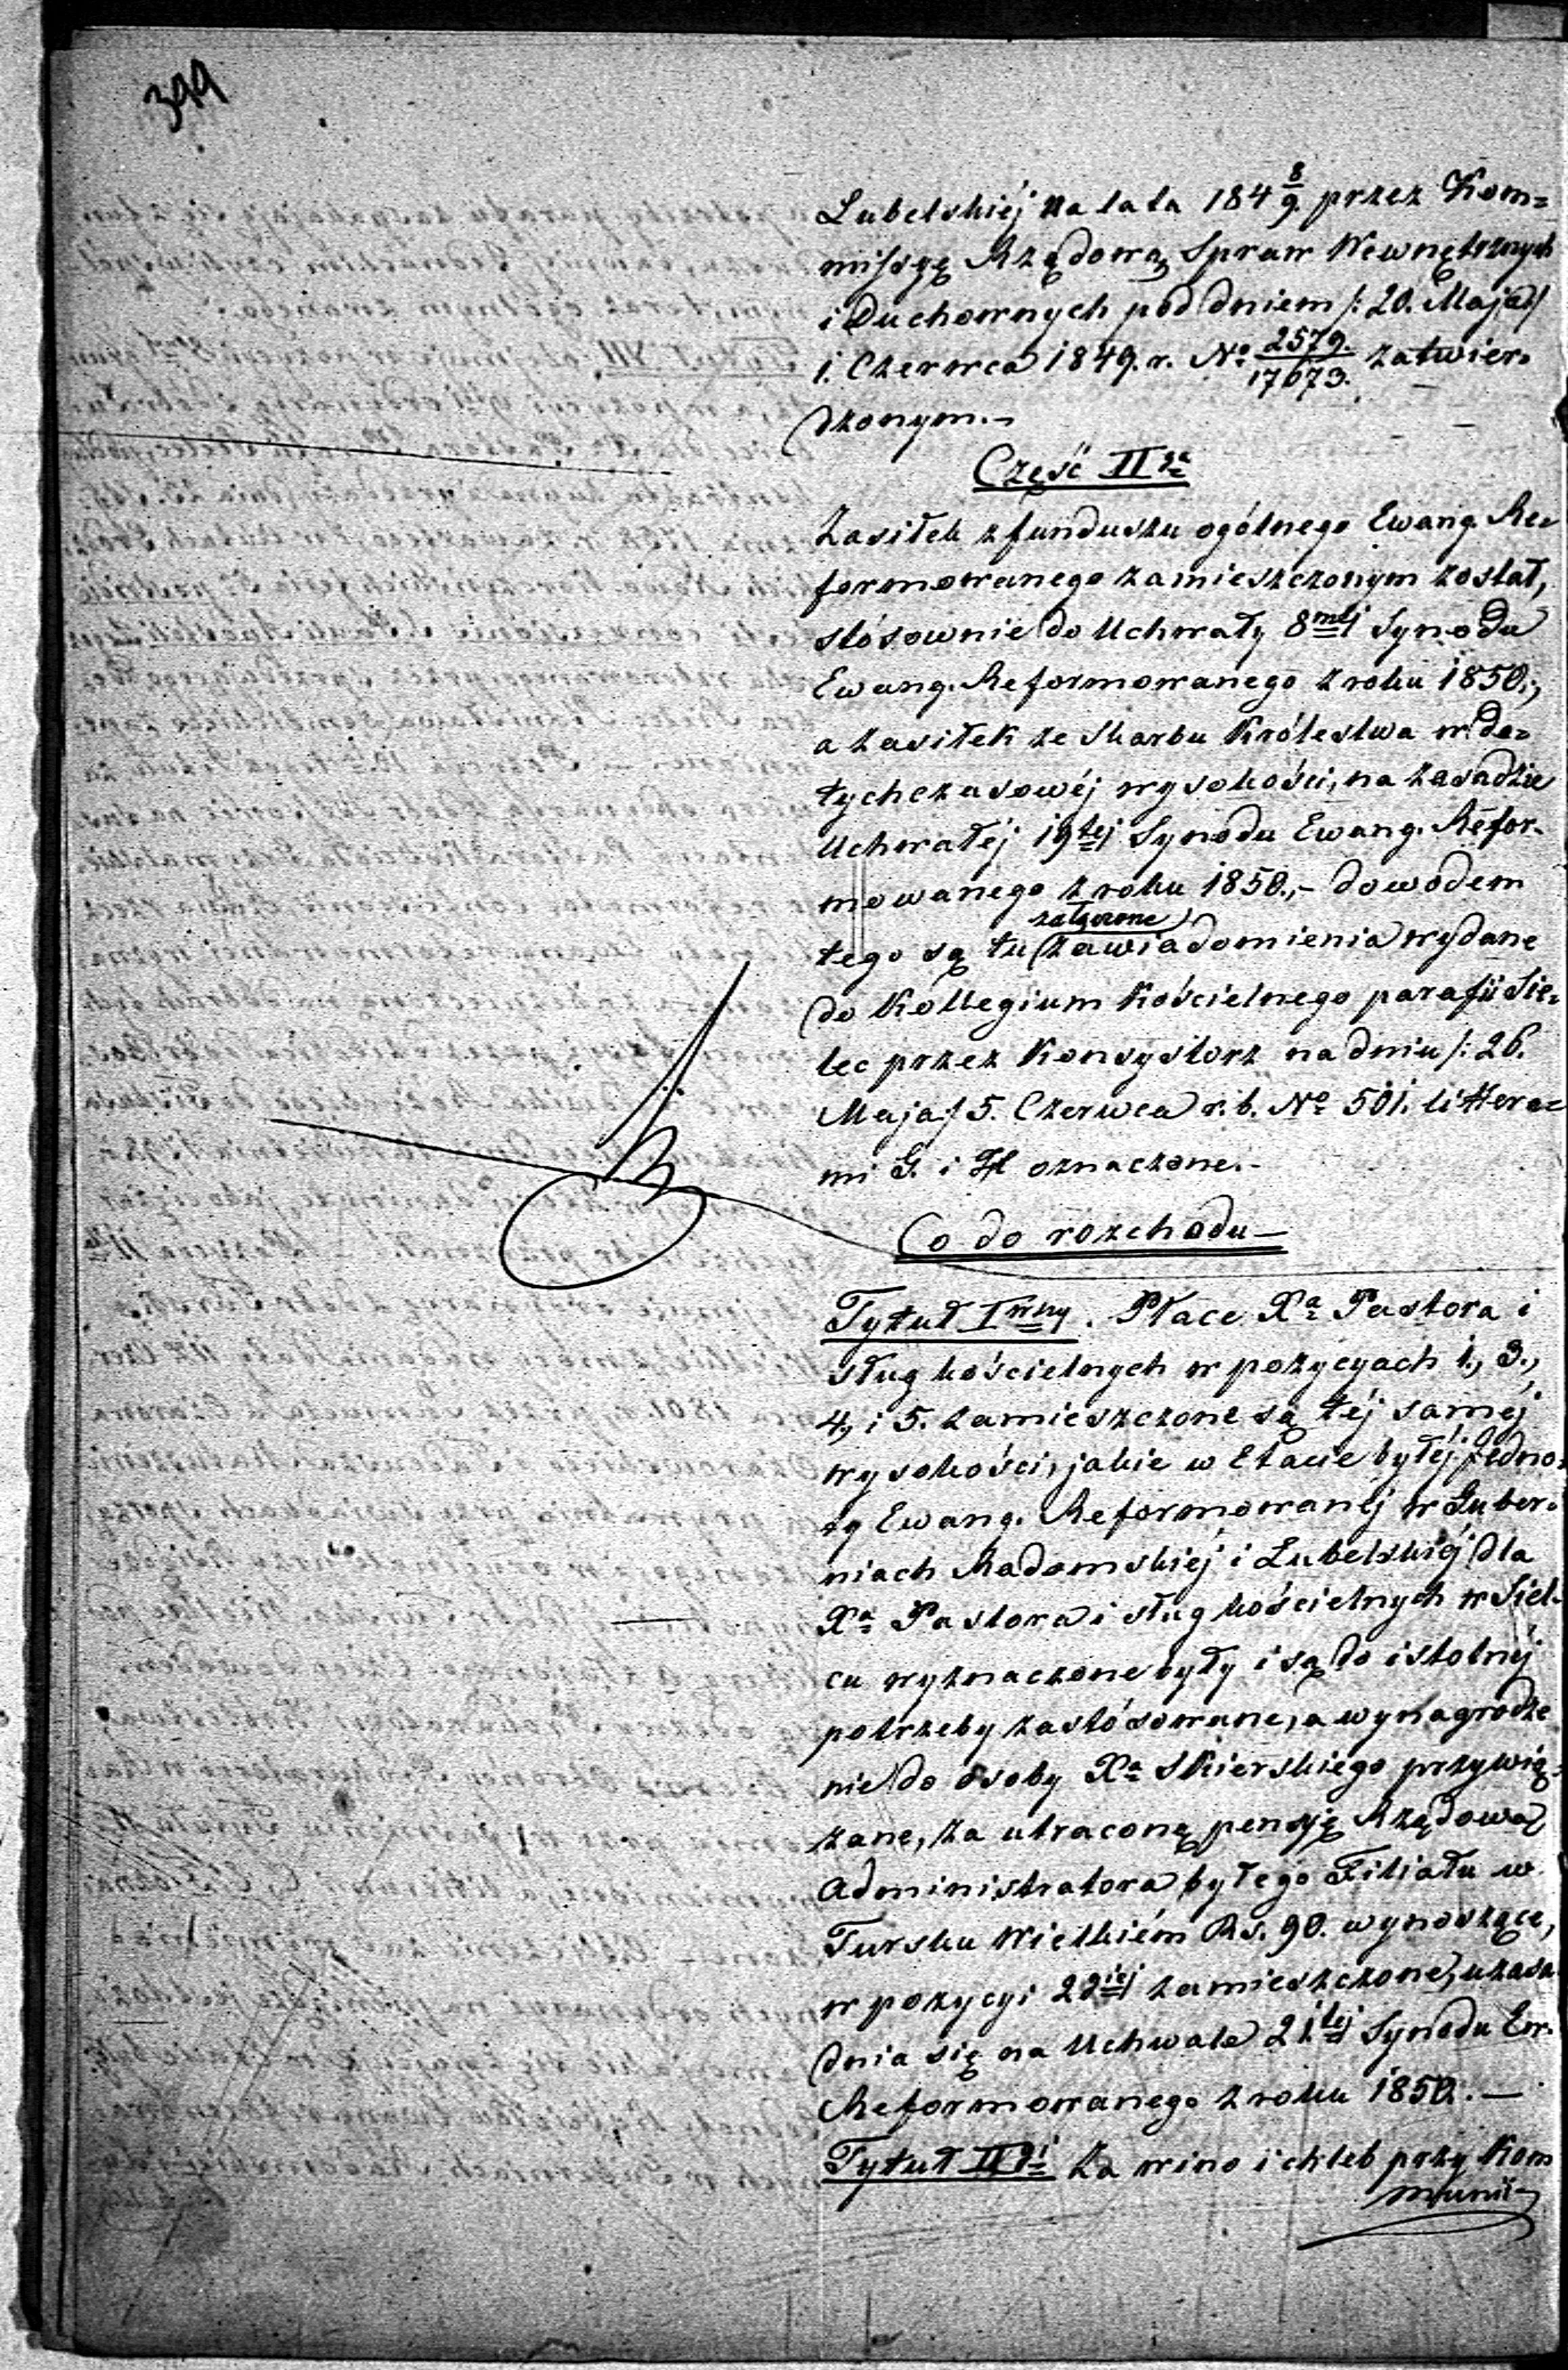 399
Lubelskiéj na lata 184 8/9. przez Kom=
missyę Rządową Spraw Wewnętrznych
i Duchownych pod dniem /: 20. Maja /
1. Czerwca 1849. r. No 2579./17673. zatwier=
dzonym.–
Część II ga
Zasiłek z funduszu ogólnego Ewang. Re=
formowanego zamieszczonym został,
stósownie do Uchwały 8mej Synodu
Ewang. Reformowanego z roku 1850.;
a zasiłek ze Skarbu Królestwa w do=
tychczasowéj wysokości, na zasadzie
Uchwałéj 19tej Synodu Ewang. Refor=
mowanego z roku 1850.,– dowodem
załączone
tego są tu zawiadomienia wydane
do Kollegium Kościelnego parafii Sie=
lec przez Konsystorz na dniu /: 26.
Maja / 5. Czerwca r. b. No 501. littera=
mi G. i H oznaczone.–
Co do rozchodu –
Tytuł I wszy. Płace Xa Pastora i
sług kościelnych w pozycyach 1., 3.,
4, i 5. zamieszczone są téj saméj
wysokości, jakie w Etacie byłéj Jedno=
ty Ewang. Reformowanéj w Guber=
niach Radomskiéj i Lubelskiéj dla
Xa Pastora i sług kościelnych w Siel=
cu wyznaczone były i są do istotnéj
potrzeby zastósowane, a wynagrodze
nie do osoby Xa Skierskiego przywią=
zane, za utraconą pensyę Rządową
Administratora byłego Filiału w
Tursku Wielkiém Rs. 90. wynoszące,
w pozycyi 22iej zamieszczone, uzasa
dnia się na Uchwale 21.tej Synodu Ew.
Reformowanego z roku 1850. –
Tytuł II gi Za wino i chleb przy Kom
munii